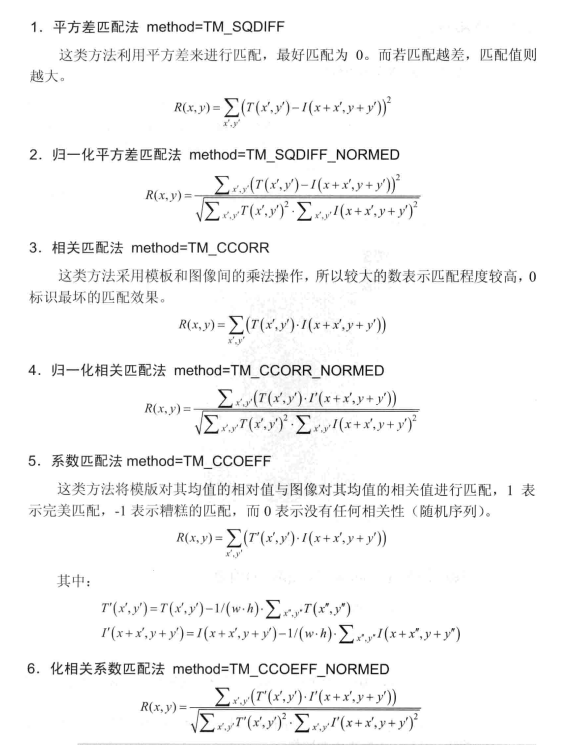 1．平方差匹配法 method=TM_SQDIFF
这类方法利用平方差来进行匹配，最好匹配为 0。而若匹配越差，匹配值则
越大。
R(x,y)=∑x′,y′(T(x′,y′)−I(x+x′,y+y′))²
2．归一化平方差匹配法 method=TM_SQDIFF_NORMED
R(x,y)=∑x′,y′(T(x′,y′)−I(x+x′,y+y′))² / √(∑x′,y′T(x′,y′)²·∑x′,y′I(x+x′,y+y′)²)
3．相关匹配法 method=TM_CCORR
这类方法采用模板和图像间的乘法操作，所以较大的数表示匹配程度较高，0
标识最坏的匹配效果。
R(x,y)=∑x′,y′(T(x′,y′)·I(x+x′,y+y′))
4．归一化相关匹配法 method=TM_CCORR_NORMED
R(x,y)=∑x′,y′(T(x′,y′)·I′(x+x′,y+y′)) / √(∑x′,y′T(x′,y′)²·∑x′,y′I(x+x′,y+y′)²)
5．系数匹配法 method=TM_CCOEFF
这类方法将模版对其均值的相对值与图像对其均值的相关值进行匹配，1 表
示完美匹配，-1 表示糟糕的匹配，而 0 表示没有任何相关性（随机序列）。
R(x,y)=∑x′,y′(T′(x′,y′)·I(x+x′,y+y′))
其中：
T′(x′,y′)=T(x′,y′)−1/(w·h)·∑x″,y″T(x″,y″)
I′(x+x′,y+y′)=I(x+x′,y+y′)−1/(w·h)·∑x″,y″I(x+x″,y+y″)
6．化相关系数匹配法 method=TM_CCOEFF_NORMED
R(x,y)=∑x′,y′(T′(x′,y′)·I′(x+x′,y+y′)) / √(∑x′,y′T′(x′,y′)²·∑x′,y′I′(x+x′,y+y′)²)